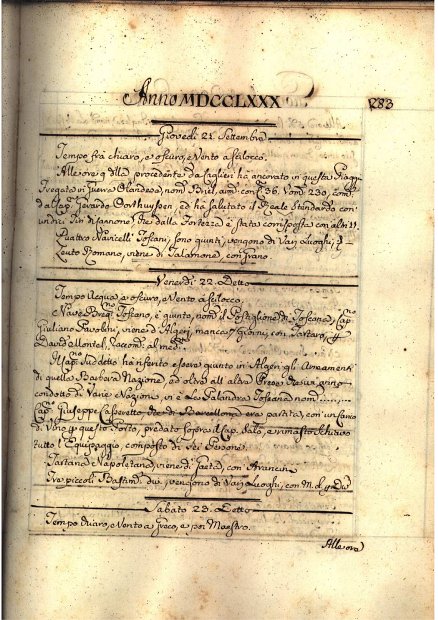 Anno MDCCLXXX
283
Giovedi 21. Settembre
Tempo frà chiaro, e oscuro, e Vento a scilocco.
Alle ore 9 della procedente da Caglieri hà ancorato in questa Spiaggia
Fregata in guerra Olandese, nom. Briel, arm. con C. 36. Uom. 230, com.
dal Cap. Gerardo Oorthuyssen, ed hà salutato il Reale Stendardo con
undici Tiri di Cannone, che dalla Fortezza è stata corrisposta con altri 11.
Quattro Navicelli Toscani, sono giunti, vengono di Varj Luoghi, e
Leuto Romano, viene di Talamone, con Grano
Venerdi 22. Detto
Tempo Acqua, e oscuro, e Vento a scilocco.
Nave Toscano, è giunto, nom. il Postiglione di Toscana, Cap.
Giuliano viene d'Algeri, manca 7 Giorni, con Tartaro, &
David Montel, Raccom. al med.
Il Cap. suddetto hà riferito essere giunto in Algeri gli Armamenti
di quella Barbara Nazione, ed oltre all' altre Prede
condotto di Varie Nazioni, vi è La Palandra Toscana nom.
Cap. Giuseppe che di Barcellona era partita, con un Carico
di Vino p questo Porto, predato sopra il Cap. Salò, e rimasto schiavo
tutto l'Equipaggio, composto di Sei Persone.
Tartana Napoletana, viene di Gaeta, con Aranci
Tre piccoli Bastim. vengono di Varj Luoghi, con M. d.
Sabato 23. Detto
Tempo Chiaro, e Vento a Greco, e poi Maestro.
Alle ore